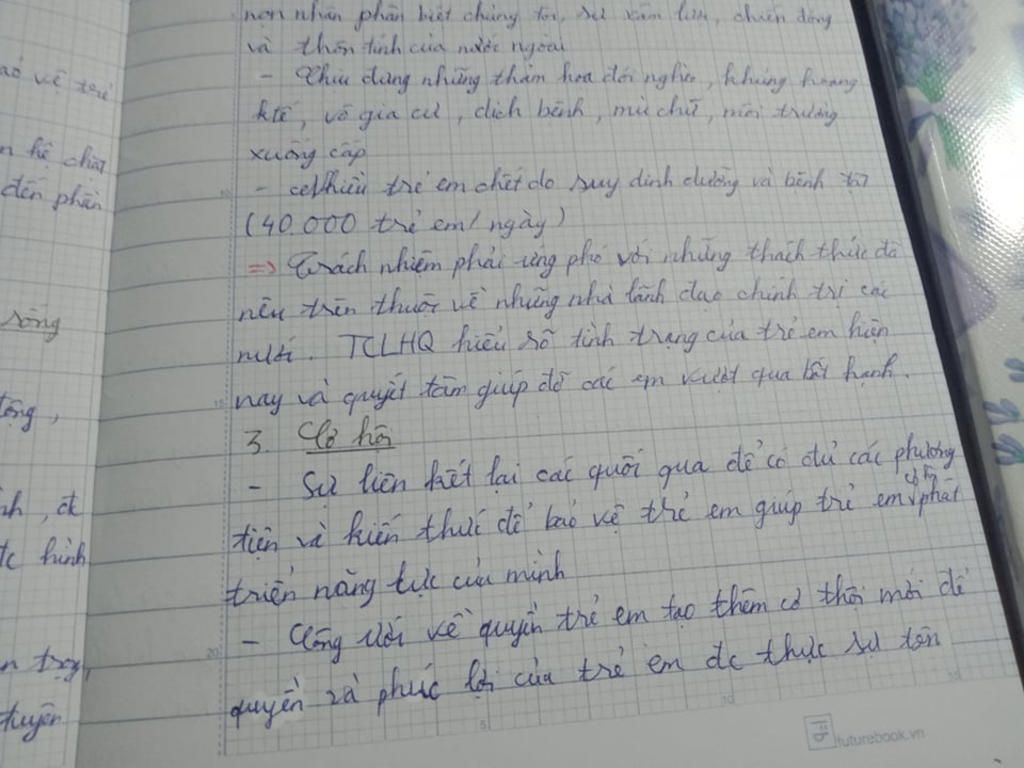 ảo vệ trẻ
n hệ chặt
đến phần
sống
tộng,
nh, đt
tc hình
n trọng,
tuyên
nạn nhân phân biệt chủng tộc, sự xâm lược, chiếm đóng
và thôn tính của nước ngoài
- Chịu đựng những thảm họa đói nghèo, khủng hoảng
ktế, vô gia cư, dịch bệnh, mù chữ, môi trường
xuống cấp
- Nhiều trẻ em chết do suy dinh dưỡng và bệnh tật
(40.000 trẻ em/ngày)
=> Trách nhiệm phải ứng phó với những thách thức đã
nêu trên thuộc về những nhà lãnh đạo chính trị các
nước. TCLHQ hiểu rõ tình trạng của trẻ em hiện
nay và quyết tâm giúp đỡ các em vượt qua bất hạnh.
3. Cơ hội
- Sự liên kết lại các quốc gia để có đủ các phương
tiện và kiến thức để bảo vệ trẻ em giúp trẻ em phát
triển năng lực của mình
- Công ước về quyền trẻ em tạo thêm cơ hội mới để
quyền và phúc lợi của trẻ em đc thực sự tôn
5
10
15
10
15
20
futurebook.vn